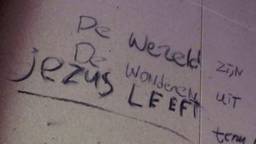 De Wereld zijn
De Wonderen uit
jezus LEEFT
teru